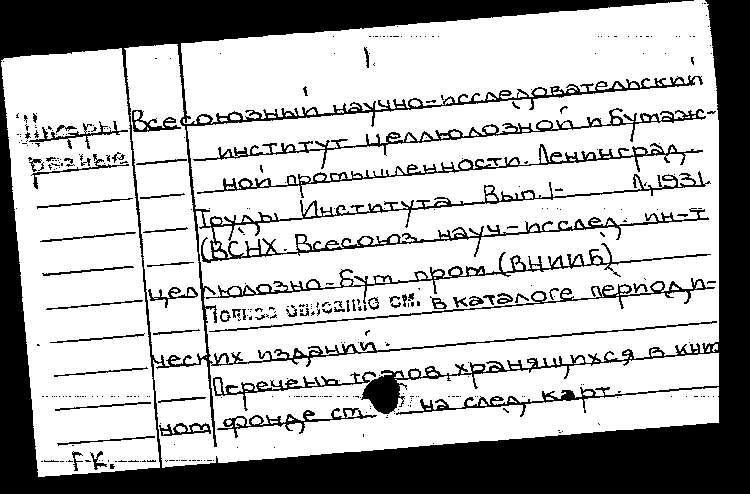 1.
Шифры Всесоюзный научно-исследовательский
разные институт целлюлозной и бумаж-
ной промышленности. Ленинград.
Труды Института. Вып. 1- Л, 1931.
(ВСНХ. Всесоюз. науч-исслед. ин-т
целлюлозно-бум. пром (ВНИИБ)
Полное описание см. в каталоге период, и-
ческих изданий.
Перечень томов, хранящихся в книж
ном фонде см на след. карт.
Г-К.